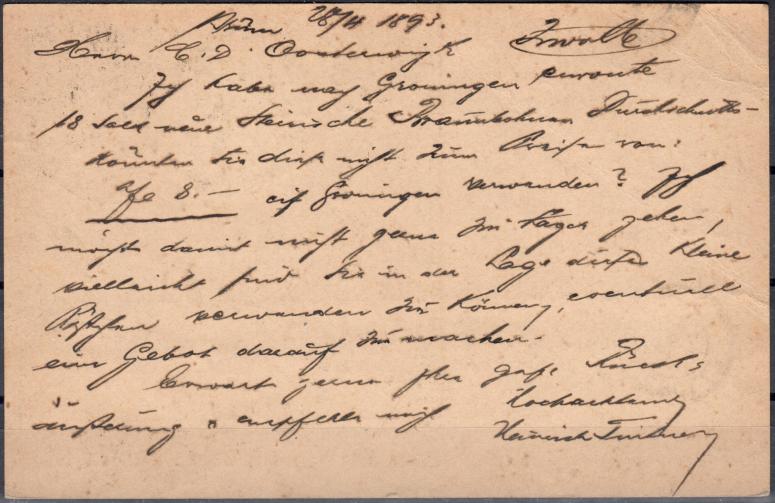 28/4 1893.
Herrn C. D. Oosterwijk Zwolle
Ich habe nach Groningen enroute
18 Sack neue Steinsche Braunbohnen Durchschnitts-
könnten Sie diese nicht zum Preise von:
8.– cif Groningen verwenden? Ich
möchte damit nicht gerne zu Lager gehen,
vielleicht sind Sie in der Lage dieses kleine
Pöstchen verwenden zu können, eventuell
ein Gebot darauf zu machen.
Erwarte gerne Ihre gefl. Rück-
äußerung & empfehle mich Hochachtend
Heinrich